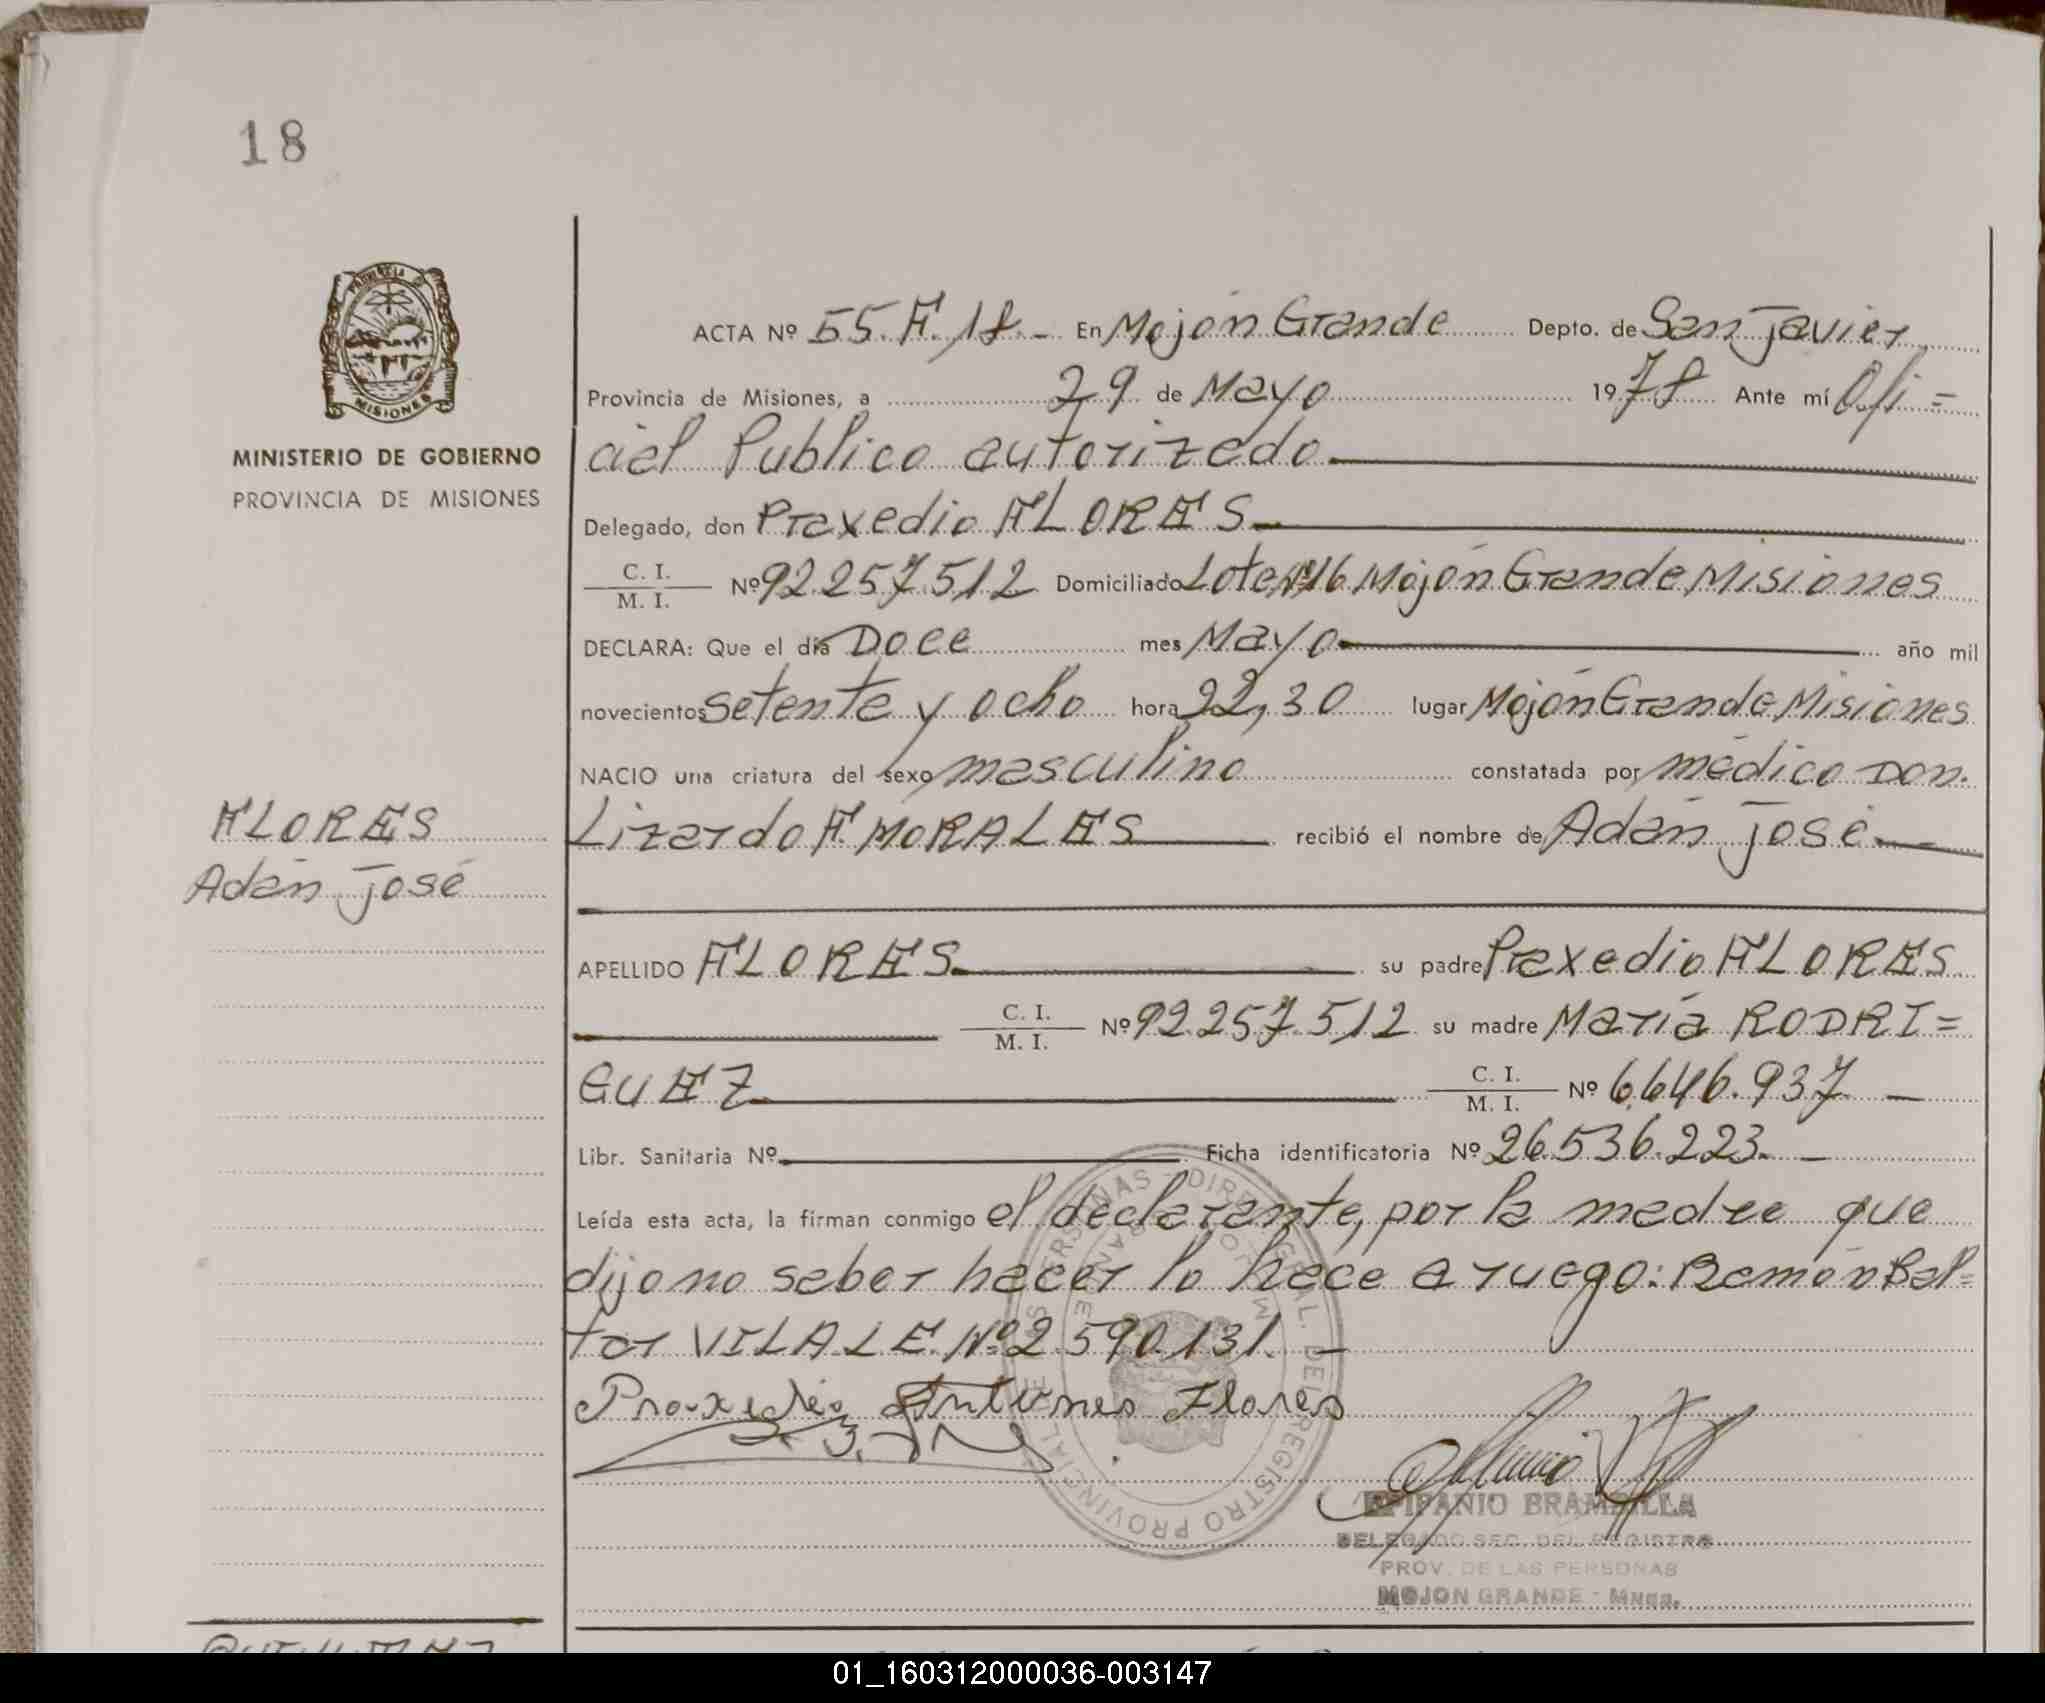 18
PROVINCIA
MISIONES
MINISTERIO DE GOBIERNO
PROVINCIA DE MISIONES
FLORES
Adán José
ACTA Nº 55. F. 18.- En Mojón Grande Depto. de San Javier
Provincia de Misiones, a 29 de Mayo 1978 Ante mí Ofi=
cial Publico autorizado
Delegado, don Praxedio FLORES
C. I. / M. I. Nº 92.257.512 Domiciliado Lote Nº16 Mojón Grande Misiones
DECLARA: Que el día Doce mes Mayo año mil
novecientos setenta y ocho hora 22,30 lugar Mojón Grande Misiones
NACIO una criatura del sexo masculino constatada por médico Don.
Lizardo F. MORALES recibió el nombre de Adán José
APELLIDO FLORES su padre Praxedio FLORES
C. I. / M. I. Nº 92.257.512 su madre María RODRI=
GUEZ C. I. / M. I. Nº 6.646.937 —
Libr. Sanitaria Nº Ficha identificatoria Nº 26.536.223. —
Leída esta acta, la firman conmigo el declarante, por la madre que
dijo no saber hacer lo hace a ruego: Ramón Bal=
tar VILALE. Nº 2.590.131. —
Praxedio Antunes Flores
EPIFANIO BRAMBILLA
DELEGADO SEC. DEL REGISTRO
PROV. DE LAS PERSONAS
MOJON GRANDE - Mnes.
01_160312000036-003147